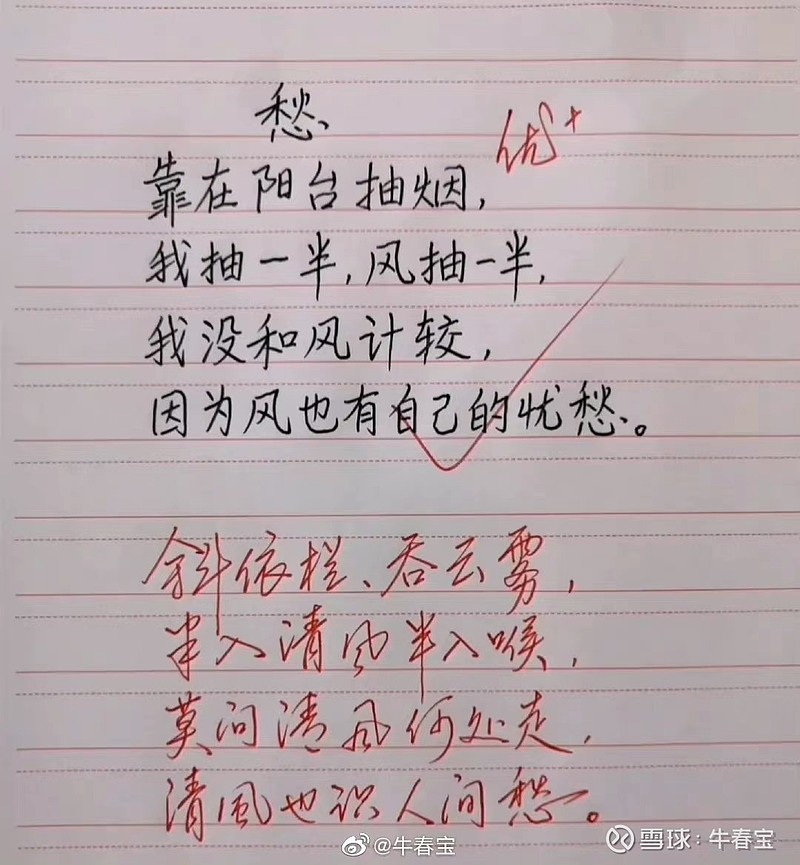 愁
优+
靠在阳台抽烟,
我抽一半,风抽一半,
我没和风计较,
因为风也有自己的忧愁。
斜依栏、吞云雾,
半入清风半入喉,
莫问清风何处走,
清風也识人间愁。
@牛春宝
雪球:牛春宝